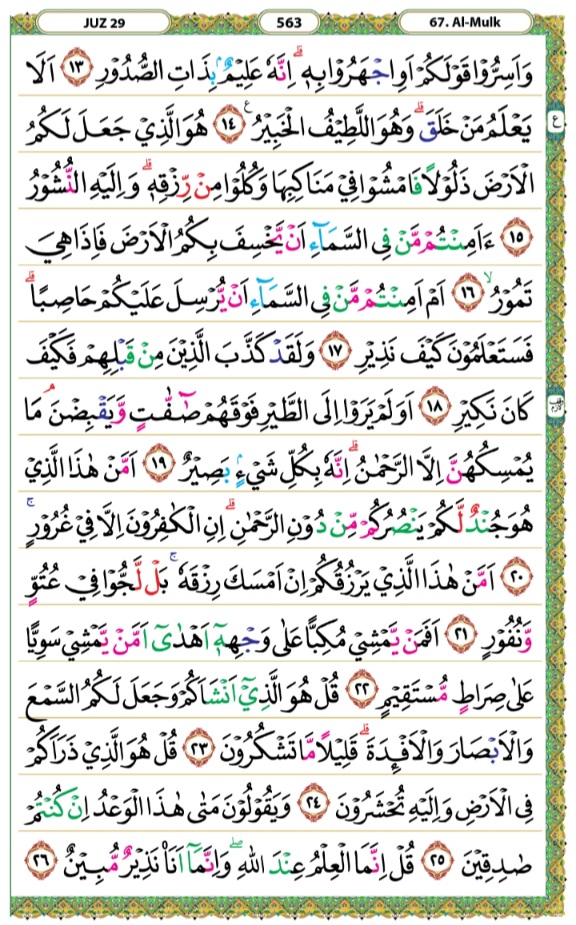 JUZ 29 563 67. Al-Mulk
وَاَسِرُّوْا قَوْلَكُمْ اَوِ اجْهَرُوْا بِهٖ ۗ اِنَّهٗ عَلِيْمٌۢ بِذَاتِ الصُّدُوْرِ ١٣ اَلَا
يَعْلَمُ مَنْ خَلَقَ ۗ وَهُوَ اللَّطِيْفُ الْخَبِيْرُ ࣖ ١٤ هُوَ الَّذِيْ جَعَلَ لَكُمُ
ع
الْاَرْضَ ذَلُوْلًا فَامْشُوْا فِيْ مَنَاكِبِهَا وَكُلُوْا مِنْ رِّزْقِهٖ ۗ وَاِلَيْهِ النُّشُوْرُ
١٥ ءَاَمِنْتُمْ مَّنْ فِى السَّمَاۤءِ اَنْ يَّخْسِفَ بِكُمُ الْاَرْضَ فَاِذَا هِيَ
تَمُوْرُۙ ١٦ اَمْ اَمِنْتُمْ مَّنْ فِى السَّمَاۤءِ اَنْ يُّرْسِلَ عَلَيْكُمْ حَاصِبًا ۗ
فَسَتَعْلَمُوْنَ كَيْفَ نَذِيْرِ ١٧ وَلَقَدْ كَذَّبَ الَّذِيْنَ مِنْ قَبْلِهِمْ فَكَيْفَ
كَانَ نَكِيْرِ ١٨ اَوَلَمْ يَرَوْا اِلَى الطَّيْرِ فَوْقَهُمْ صٰۤفّٰتٍ وَّيَقْبِضْنَ ۘ مَا
يُمْسِكُهُنَّ اِلَّا الرَّحْمٰنُ ۗ اِنَّهٗ بِكُلِّ شَيْءٍۢ بَصِيْرٌ ١٩ اَمَّنْ هٰذَا الَّذِيْ
هُوَ جُنْدٌ لَّكُمْ يَنْصُرُكُمْ مِّنْ دُوْنِ الرَّحْمٰنِ ۗ اِنِ الْكٰفِرُوْنَ اِلَّا فِيْ غُرُوْرٍ ۚ
٢٠ اَمَّنْ هٰذَا الَّذِيْ يَرْزُقُكُمْ اِنْ اَمْسَكَ رِزْقَهٗ ۚ بَلْ لَّجُّوْا فِيْ عُتُوٍّ
وَّنُفُوْرٍ ٢١ اَفَمَنْ يَّمْشِيْ مُكِبًّا عَلٰى وَجْهِهٖٓ اَهْدٰىٓ اَمَّنْ يَّمْشِيْ سَوِيًّا
عَلٰى صِرَاطٍ مُّسْتَقِيْمٍ ٢٢ قُلْ هُوَ الَّذِيْٓ اَنْشَاَكُمْ وَجَعَلَ لَكُمُ السَّمْعَ
وَالْاَبْصَارَ وَالْاَفْـِٕدَةَ ۗ قَلِيْلًا مَّا تَشْكُرُوْنَ ٢٣ قُلْ هُوَ الَّذِيْ ذَرَاَكُمْ
فِى الْاَرْضِ وَاِلَيْهِ تُحْشَرُوْنَ ٢٤ وَيَقُوْلُوْنَ مَتٰى هٰذَا الْوَعْدُ اِنْ كُنْتُمْ
صٰدِقِيْنَ ٢٥ قُلْ اِنَّمَا الْعِلْمُ عِنْدَ اللّٰهِ ۖ وَاِنَّمَآ اَنَا۠ نَذِيْرٌ مُّبِيْنٌ ٢٦